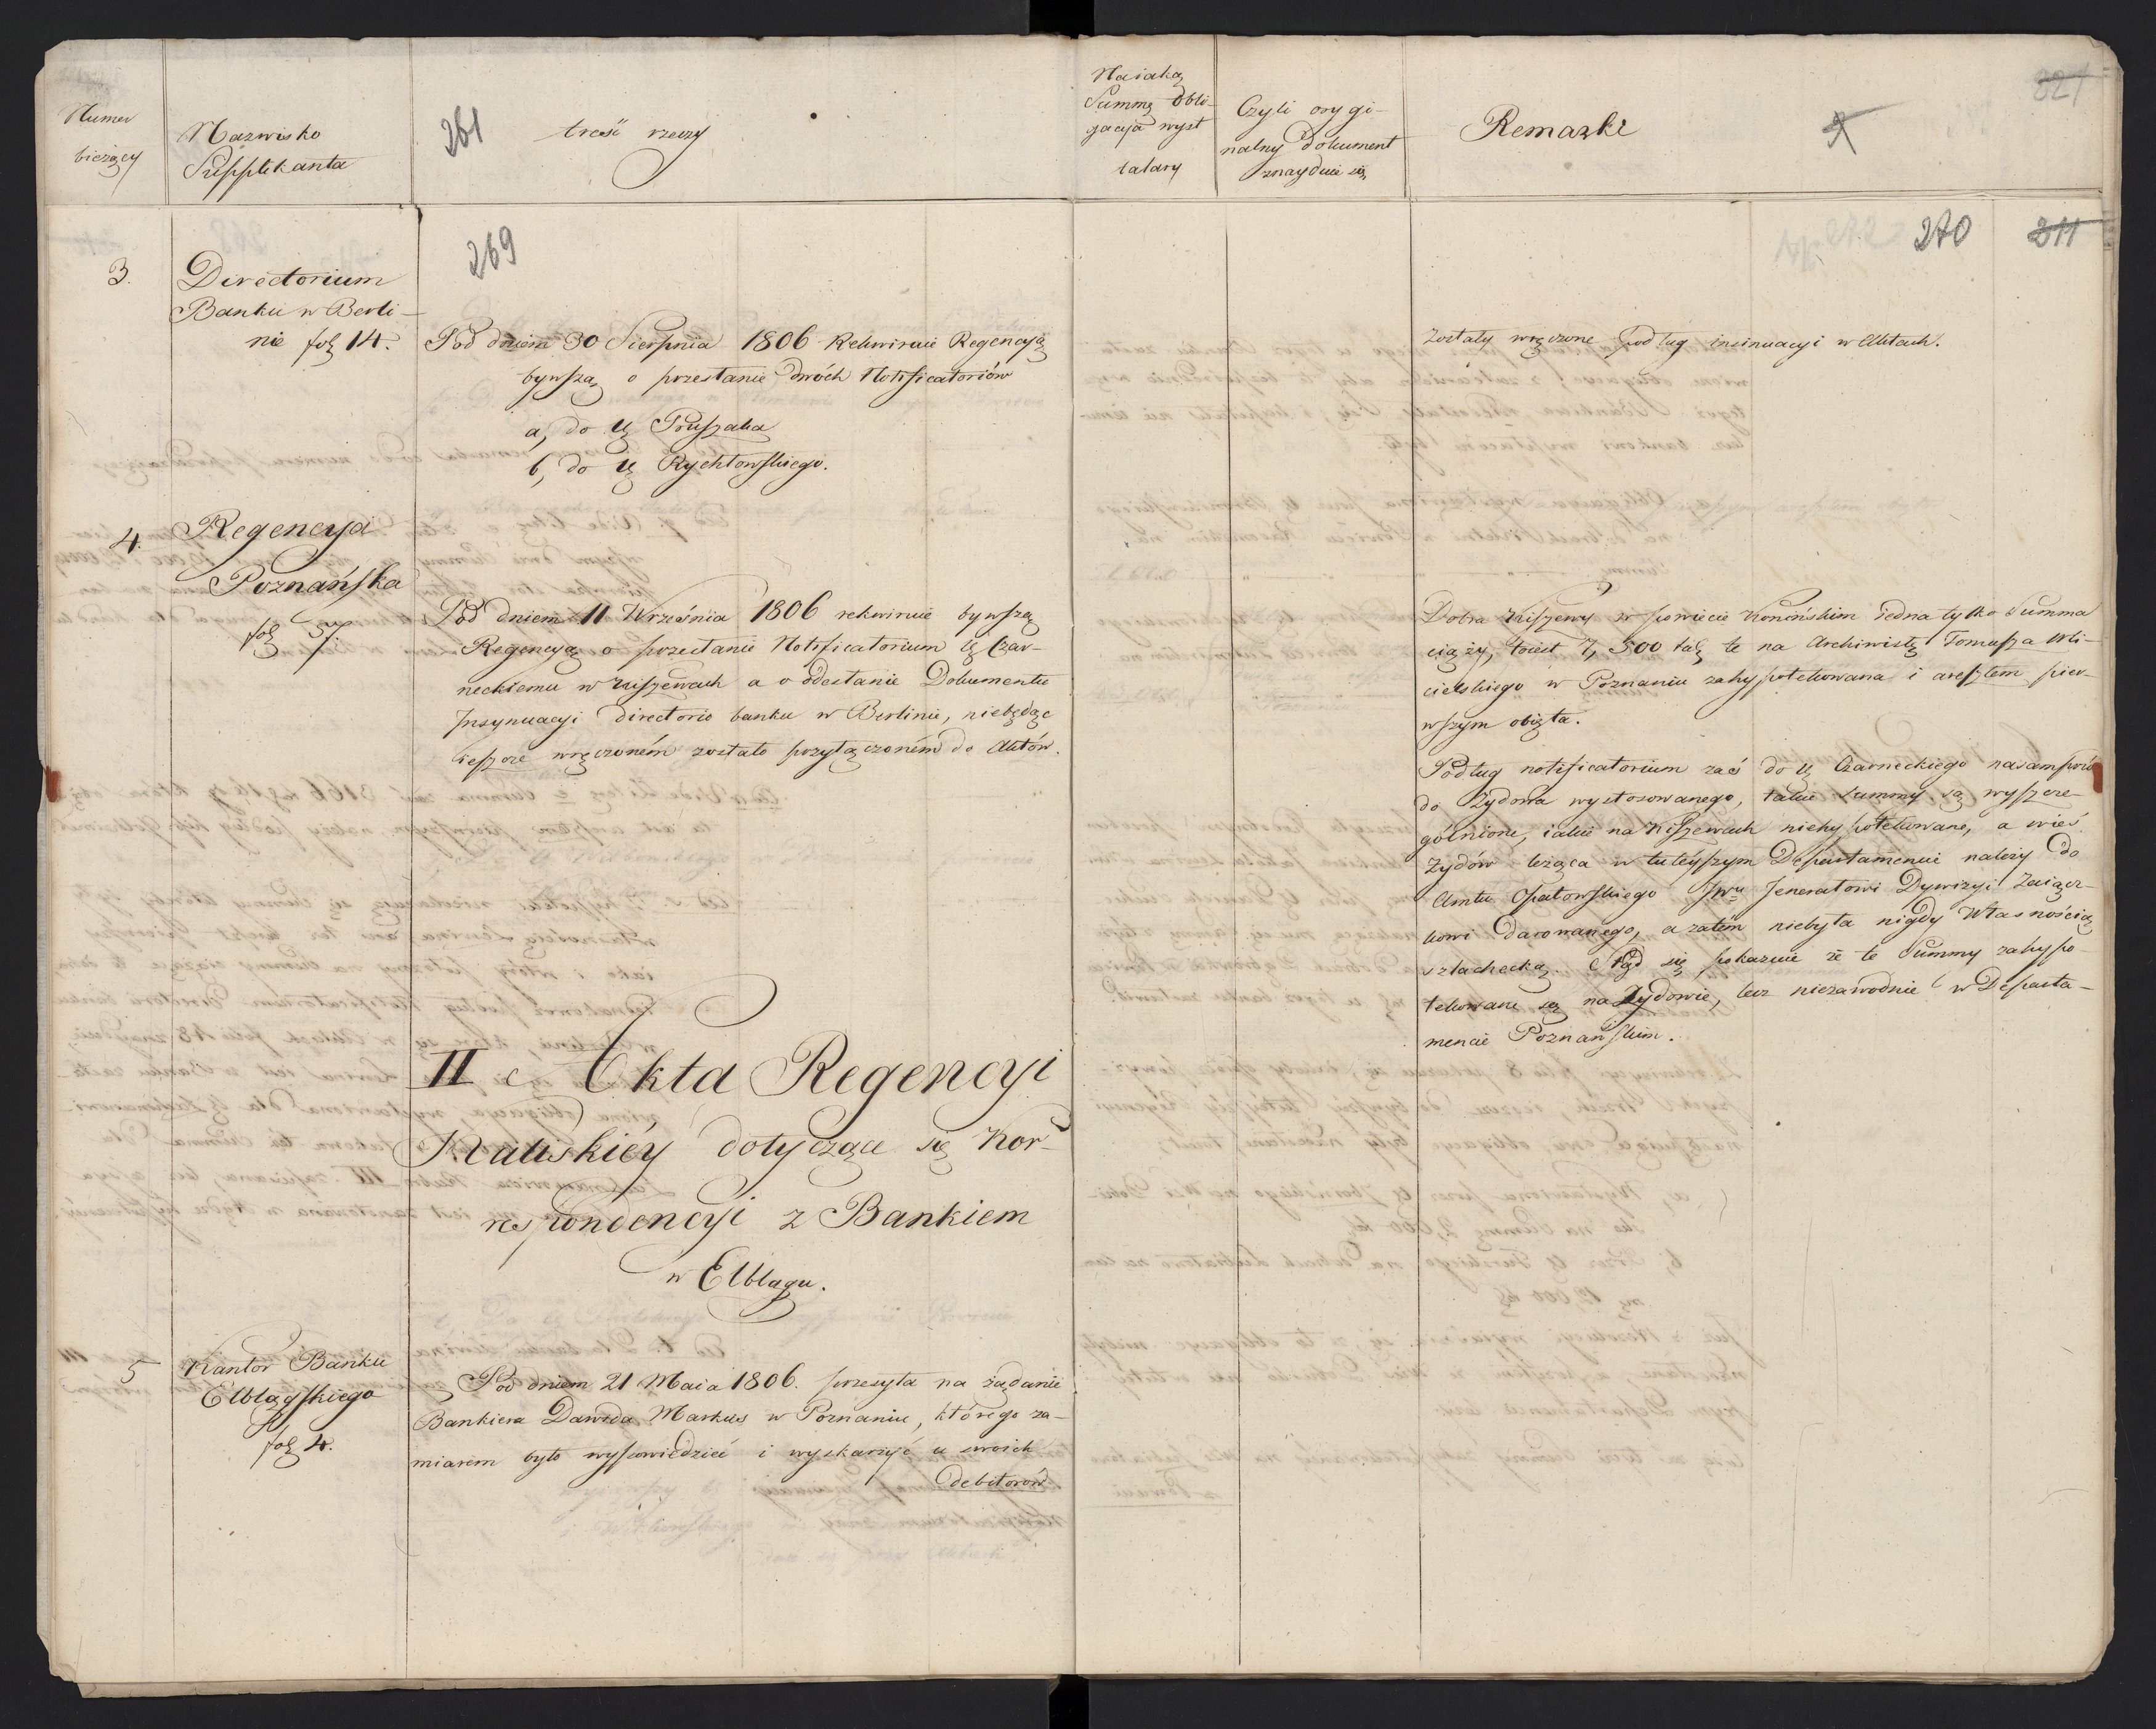 Numer
bieżący
Nazwisko
Supplikanta
261
treść rzeczy
Na iaką
Summę obli-
gacya wyst
talary
Czyli orygi-
nalny dokument
znayduie się
Remarki
321
269
270
311
3.
Directorium
Banku w Berli-
nie fol 14.
Pod dniem 30 Sierpnia 1806 Rekwiruie Regencyą
bywszą o przesłanie dwóch Notificatoriów
a, do U Pruszaka
b, do U Rychłowskiego.
zostały wręczone podług insinuacyi w Aktach.
4.
Regencya
Poznańska
fol 37.
Pod dniem 11 Września 1806 rekwiruie bywszą
Regencyą o przesłanie Notificatorium U Czar-
neckiemu w Kiszewach a o odesłanie Dokumentu
Insynuacyi directorio banku w Berlinie, niebędąc
ieszcze wręczoném zostało przyłączoném do Aktów.
Dobra Kiszewy w powiecie Konińskim iedna tylko Summa
ciąży, toiest 7,500 tal te na Archiwistę Tomasza
w Poznaniu zahypotekowana i aresztem pier-
wszym obięta.
Podług notificatorium zaś do U Czarneckiego nasamprzód
do Zydowa wystosowanego, takie summy są wyszcze-
gólnione, iakie na Kiszewach niehypotekowane, a wieś
Zydów leżąca w tuteyszym Departamencie należy do
Amtu Opatowskiego JWu Jenerałowi Dywizyi Zaiącz-
kowi darowanego, a zatém niebyła nigdy własnością
szlachecką. Stąd się pokazuie że te Summy zahypo
tekowane są na Zydowie, lecz niezawodnie w Departa-
mencie Poznańskim.
II Akta Regencyi
Kaliskiéy dotyczące się Kor-
respondencyi z Bankiem
w Elblągu.
5
Kantor Banku
Elblągskiego
fol 4.
Pod dniem 21 Maia 1806. przesyła na żądanie
Bankiera Dawida Markus w Poznaniu, którego za-
miarem było wypowiedzieć i wyskarżyć u swoich
debitorów